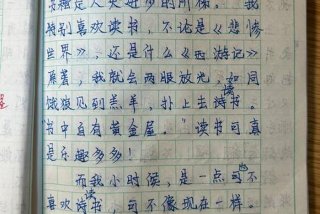 是人类的阶梯。我
特别喜欢读书，不论是《悲惨
世界》，还是什么《西游记》
原著，我就会两眼放光，如同
饿狼见到羔羊，扑上去读书。
"书中自有黄金屋。"读书可真
是乐趣多多！
而我小时候，是一点也不
喜欢读书，可不像现在一样。